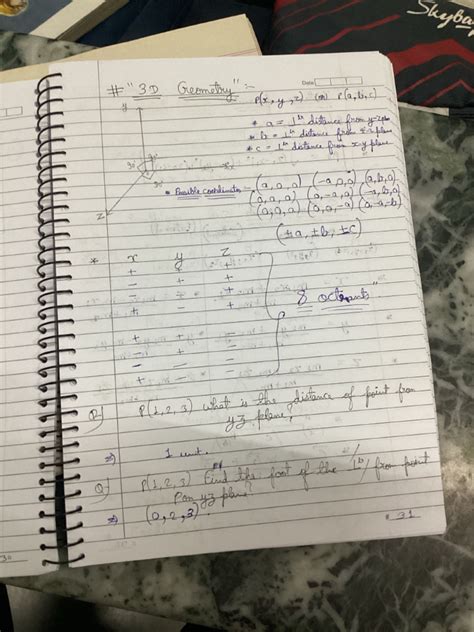 Skyba
# "3D Geometry" :-
Date
P(x, y, z) (or) P(a, b, c)
* a = ⊥ distance from y-z plane
* b = ⊥ distance from x-z plane
* c = ⊥ distance from x-y plane
y
90°
z
* Possible coordinates -
(±a, ±b, ±c)
* x y z
+ + +
- + +
- - +
+ - +
+ + -
- + -
- - -
+ - -
8 octants"
Q) P(1, 2, 3) what is the distance of point from
yz plane,
⇒) 1 unit.
Q) P(1, 2, 3) Find the foot of the ⊥ from point
P on yz plane?
⇒) (0, 2, 3).
# 31